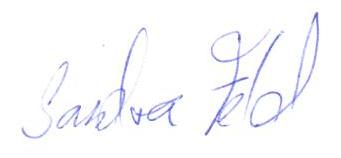 Sandra Feld